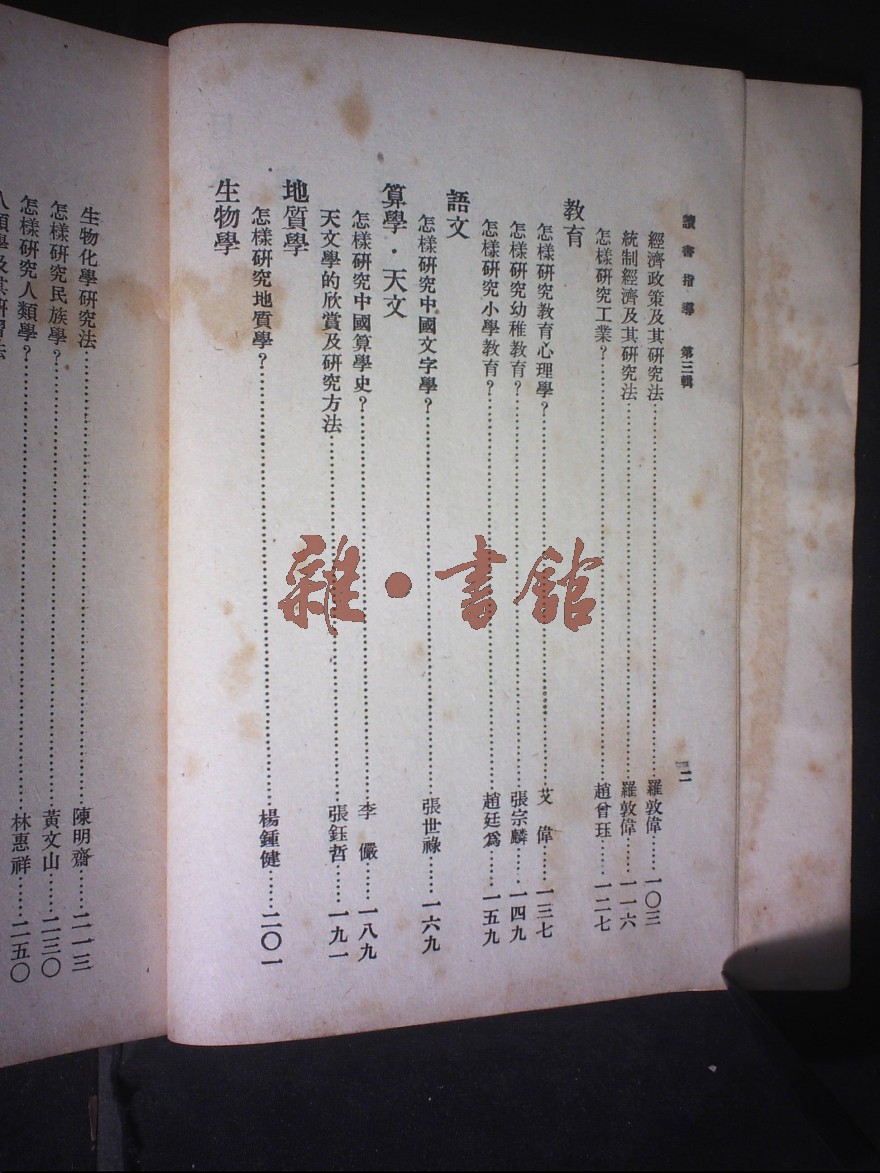 讀書指導 第三輯
二
經濟政策及其研究法……羅敦偉……一〇三
統制經濟及其研究法……羅敦偉……一一六
怎樣研究工業?……趙曾珏……一二七
教育
怎樣研究教育心理學?……艾偉……一三七
怎樣研究幼稚教育?……張宗麟……一四九
怎樣研究小學教育?……趙廷爲……一五九
語文
怎樣研究中國文字學?……張世祿……一六九
算學·天文
怎樣研究中國算學史?……李儼……一八九
天文學的欣賞及研究方法……張鈺哲……一九一
地質學
怎樣研究地質學?……楊鍾健……二〇一
生物學
生物化學研究法……陳明齋……二一三
怎樣研究民族學?……黃文山……二三〇
怎樣研究人類學?……林惠祥……二五〇
雜·書館